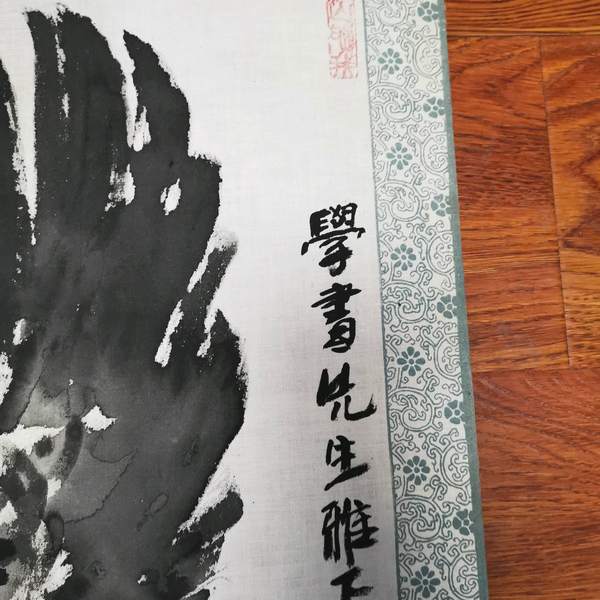 學書先生雅